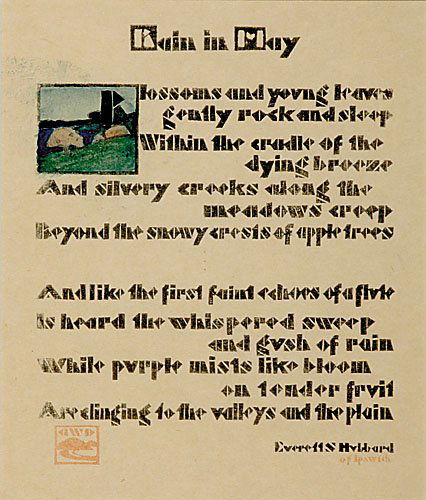 Rain in May
Blossoms and young leaves
gently rock and sleep
Within the cradle of the
dying breeze
And silvery creeks along the
meadows creep
Beyond the snowy crests of apple trees
And like the first faint echoes of a flute
Is heard the whispered sweep
and gush of rain
While purple mists like bloom
on tender fruit
Are clinging to the valleys and the plain
AWD
Everett S Hubbard
of Ipswich